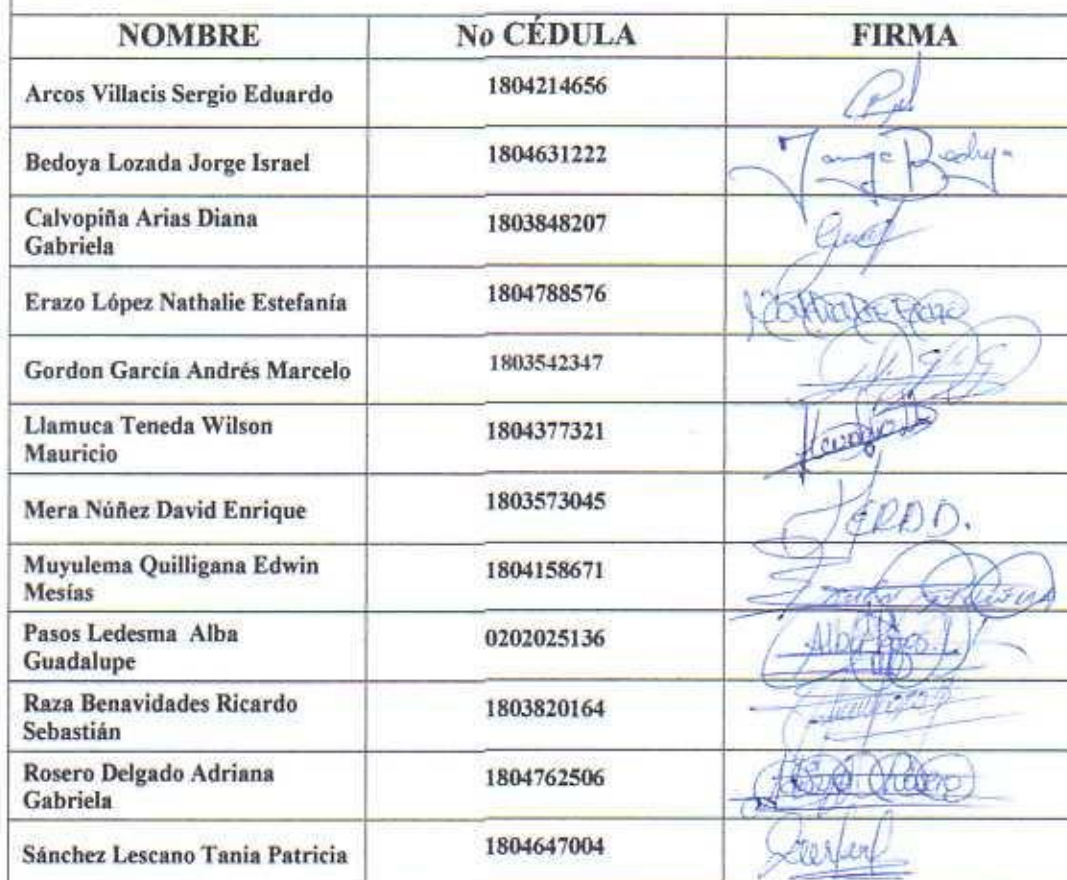 NOMBRE No CÉDULA FIRMA
Arcos Villacis Sergio Eduardo 1804214656
Bedoya Lozada Jorge Israel 1804631222 Jorge Bedoya
Calvopiña Arias Diana
Gabriela 1803848207
Erazo López Nathalie Estefanía 1804788576
Gordon García Andrés Marcelo 1803542347
Llamuca Teneda Wilson
Mauricio 1804377321
Mera Núñez David Enrique 1803573045
Muyulema Quilligana Edwin
Mesías 1804158671
Pasos Ledesma Alba
Guadalupe 0202025136 Alba Pasos L.
Raza Benavidades Ricardo
Sebastián 1803820164
Rosero Delgado Adriana
Gabriela 1804762506
Sánchez Lescano Tania Patricia 1804647004